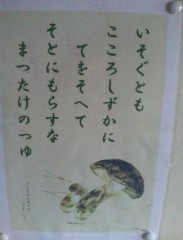 いそぐとも
こころしずかに
てをそへて
そとにもらすな
まつたけのつゆ